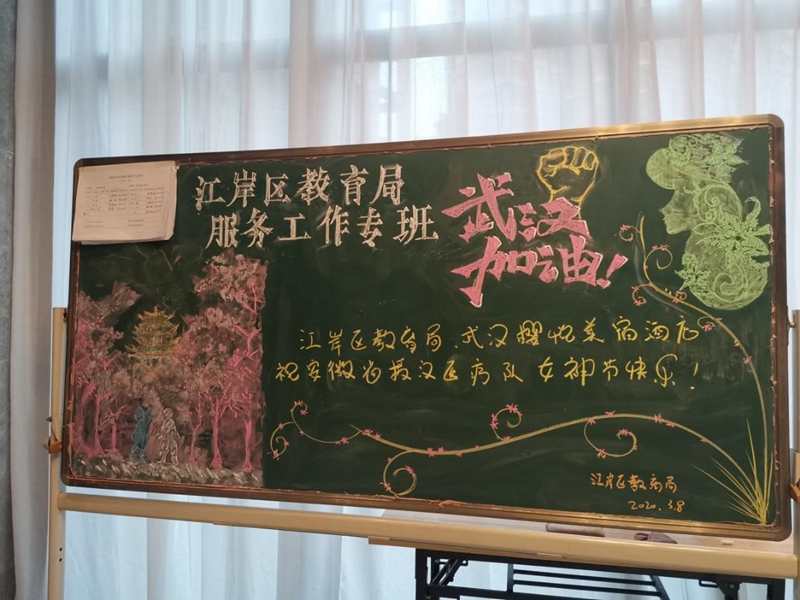 江岸区教育局
服务工作专班
武汉
加油!
江岸区教育局、武汉樱悦美宿酒店
祝安徽为援汉医疗队 女神节快乐!
江岸区教育局
2020.3.8